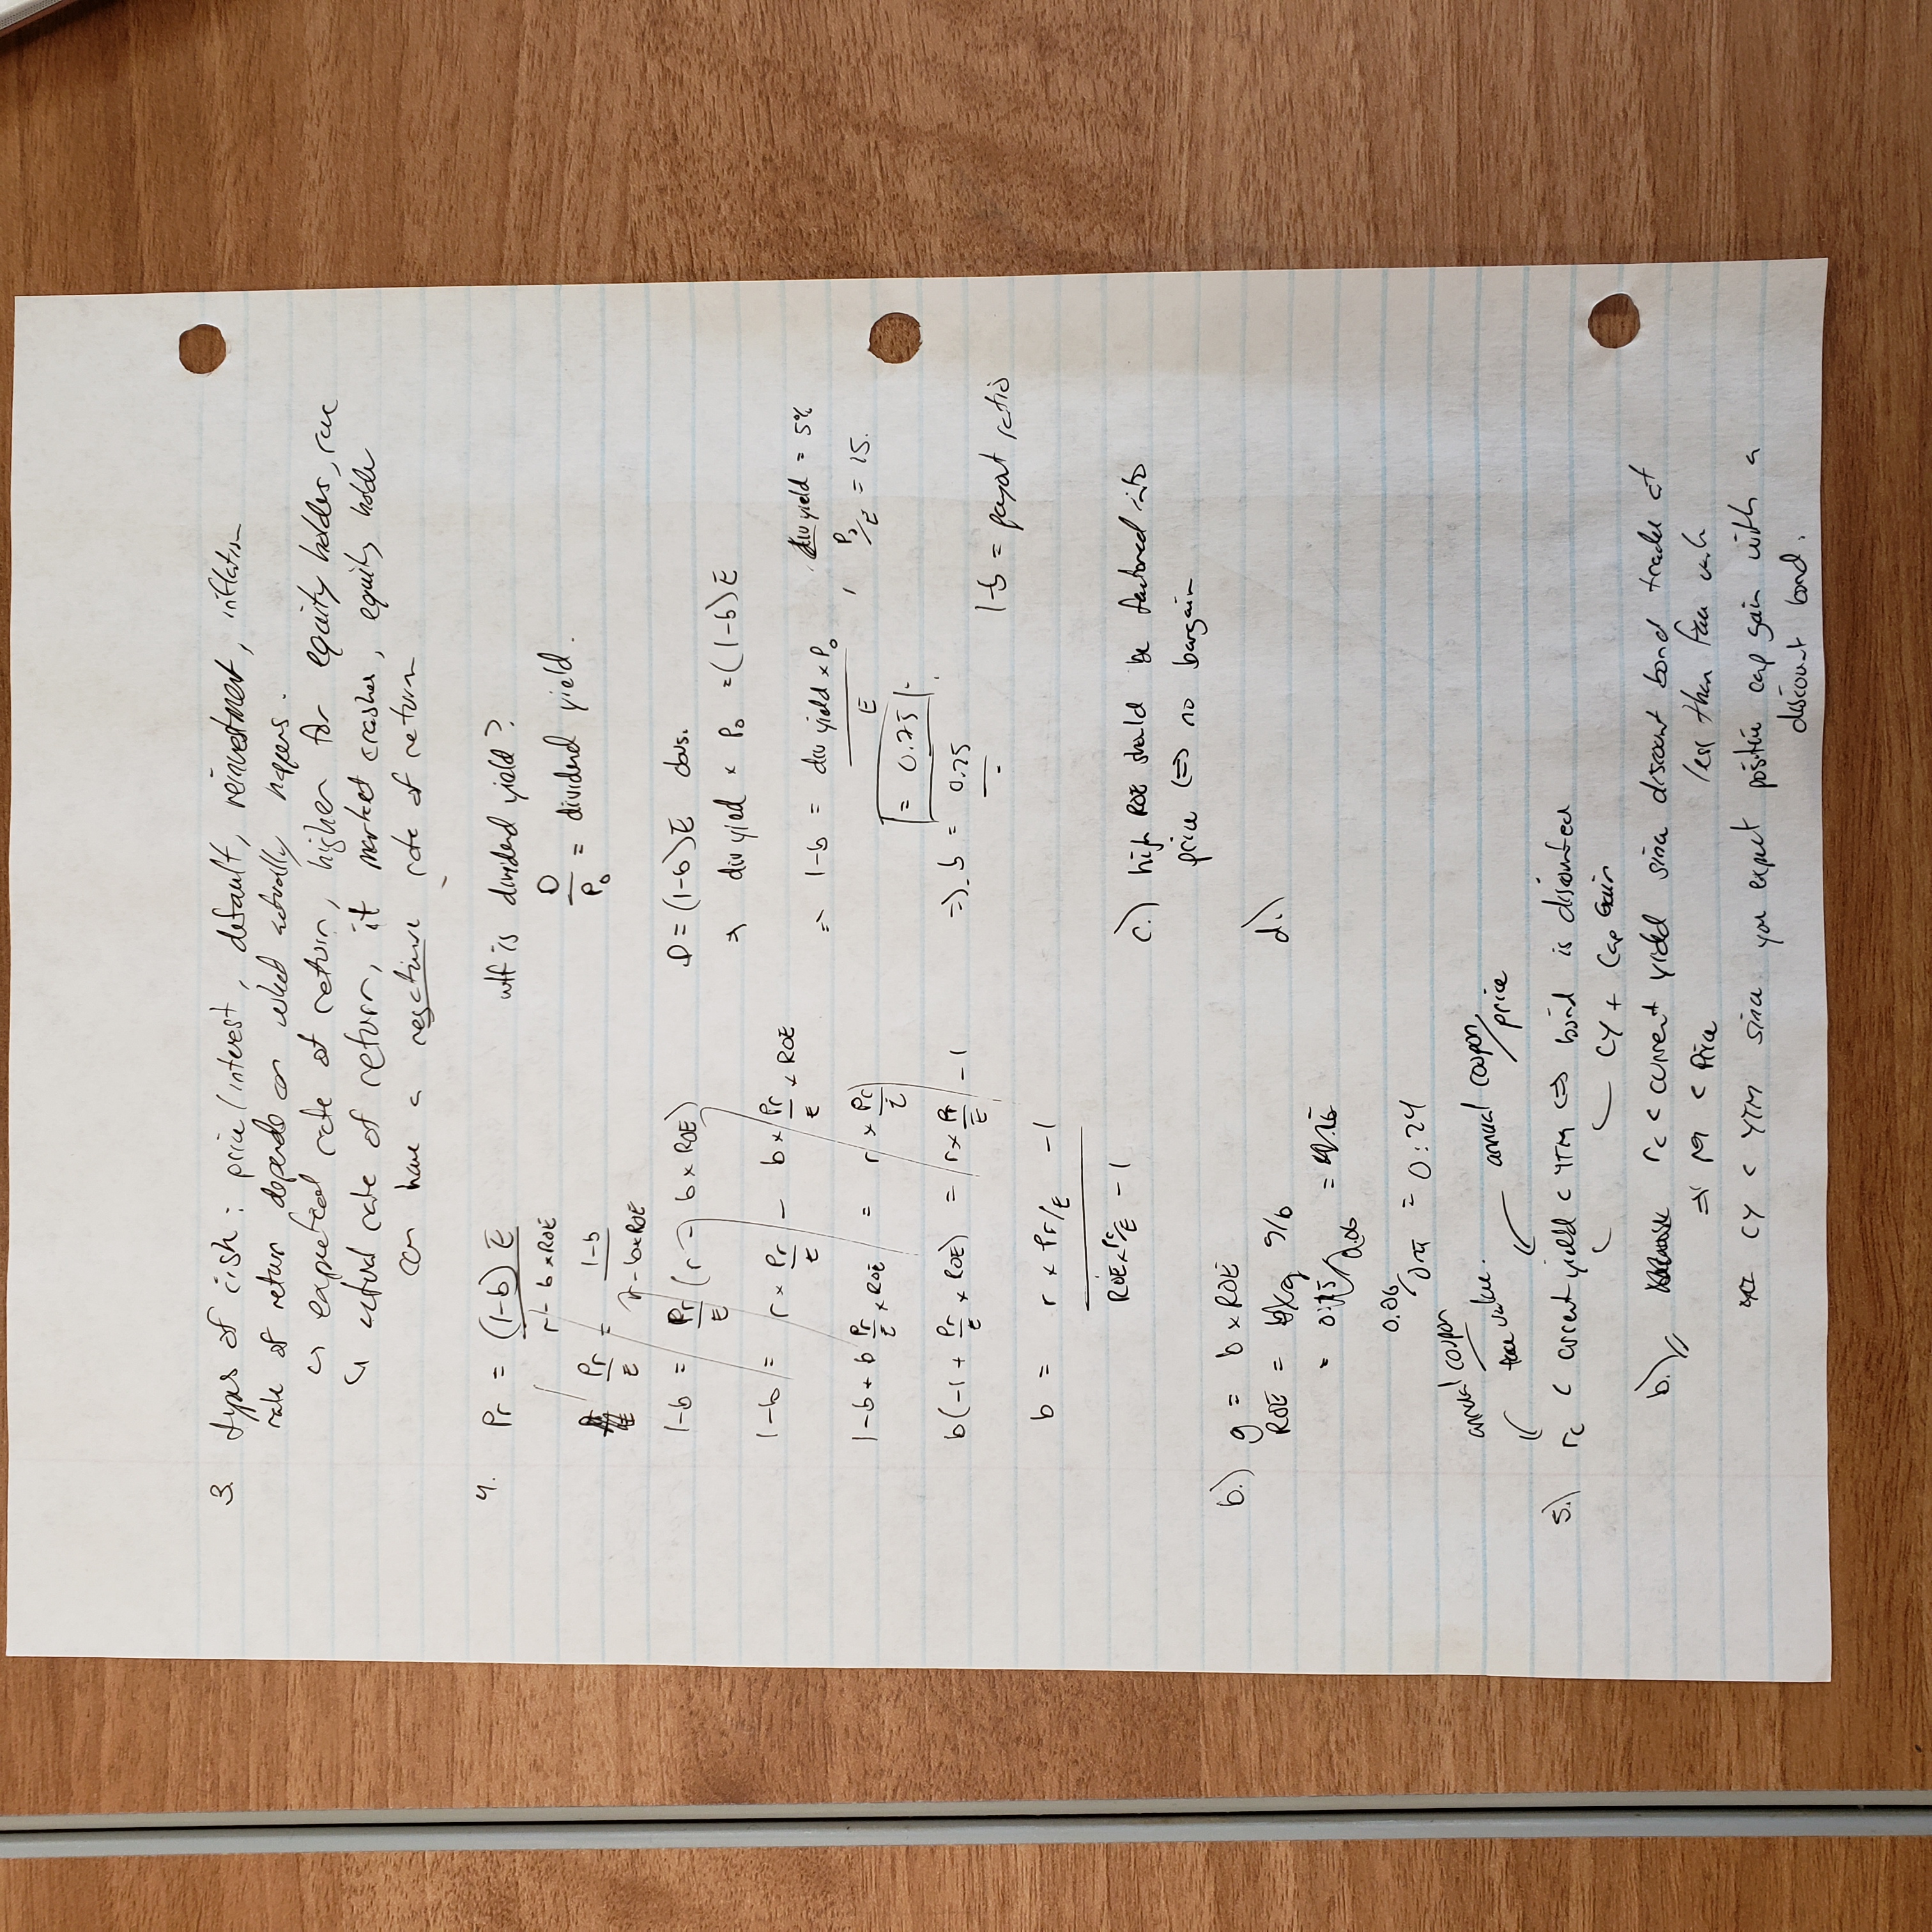 3. types of risk : price / interest , default, reinvestment, inflation
rate of return depends on what actually happens.
↳ expected rate of return, higher for equity holders,
↳ actual rate of return, if market crashes, equity holder
can have a negative rate of return
4. Pr = (1-b) E / r - b × ROE
Pr/E = 1-b / r - b×ROE
1-b = Pr/E (r - b × ROE)
1-b = r × Pr/E - b × Pr/E × ROE
1-b + b Pr/E × ROE = r × Pr/E
b(-1 + Pr/E × ROE) = r × Pr/E - 1
b = r × Pr/E - 1 / ROE × Pr/E - 1
wtf is dividend yield?
D/P₀ = dividend yield.
D = (1-b)E obvs.
⇒ div yied × P₀ = (1-b)E
⇒ 1-b = div yield × P₀ / E , div yield = 5%
P₀/E = 15.
= 0.75
⇒ b = 0.25
1-b = payout ratio
b.) g = b × ROE
ROE = g/b
0.06/0.25 = 0.24
c.) high ROE should be factored into
price ⇔ no bargain
d.)
annual coupon / face value.
annual coupon / price
5.) rc < current yield < YTM ⇔ bond is discounted
CY + Cap Gain
b.) rc < current yield since discount bond trades at
less than face
⇒ < Price
CY < YTM since you expect positive cap gain with a
discount bond.